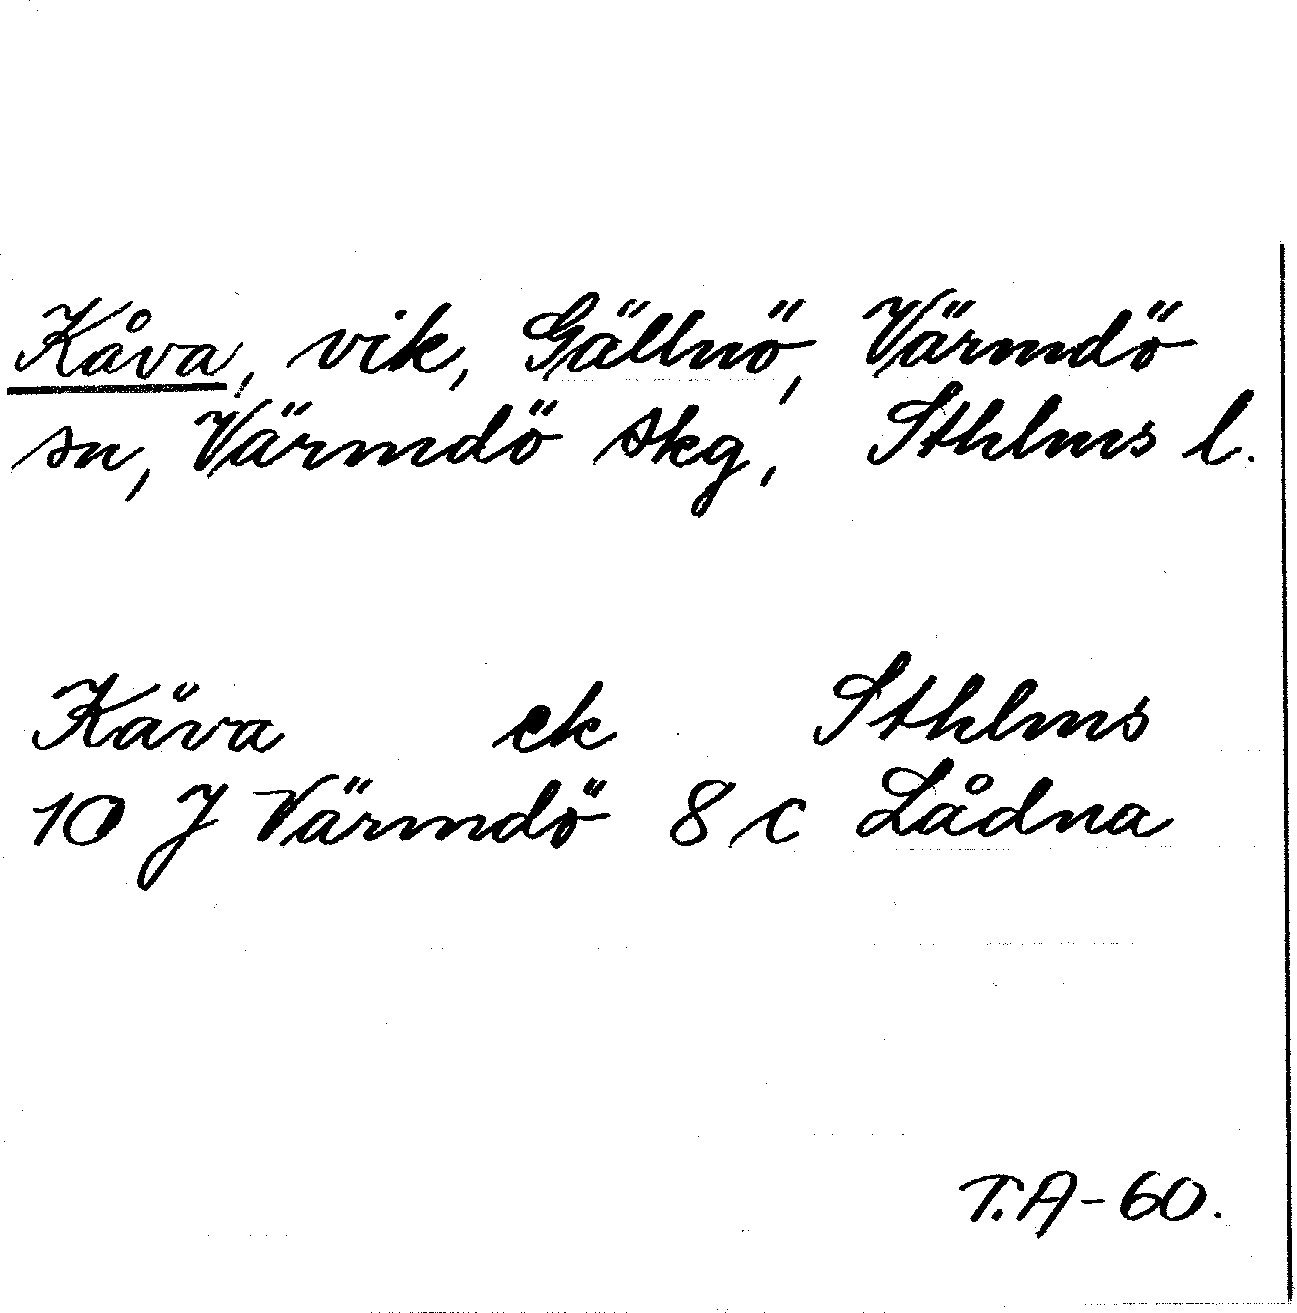 Kåva, vik, Gällnö, Värmdö
sn, Värmdö skg, Sthlms l.
Käva ek Sthlms
10 J Värmdö 8 c Lådna
T.A-60.